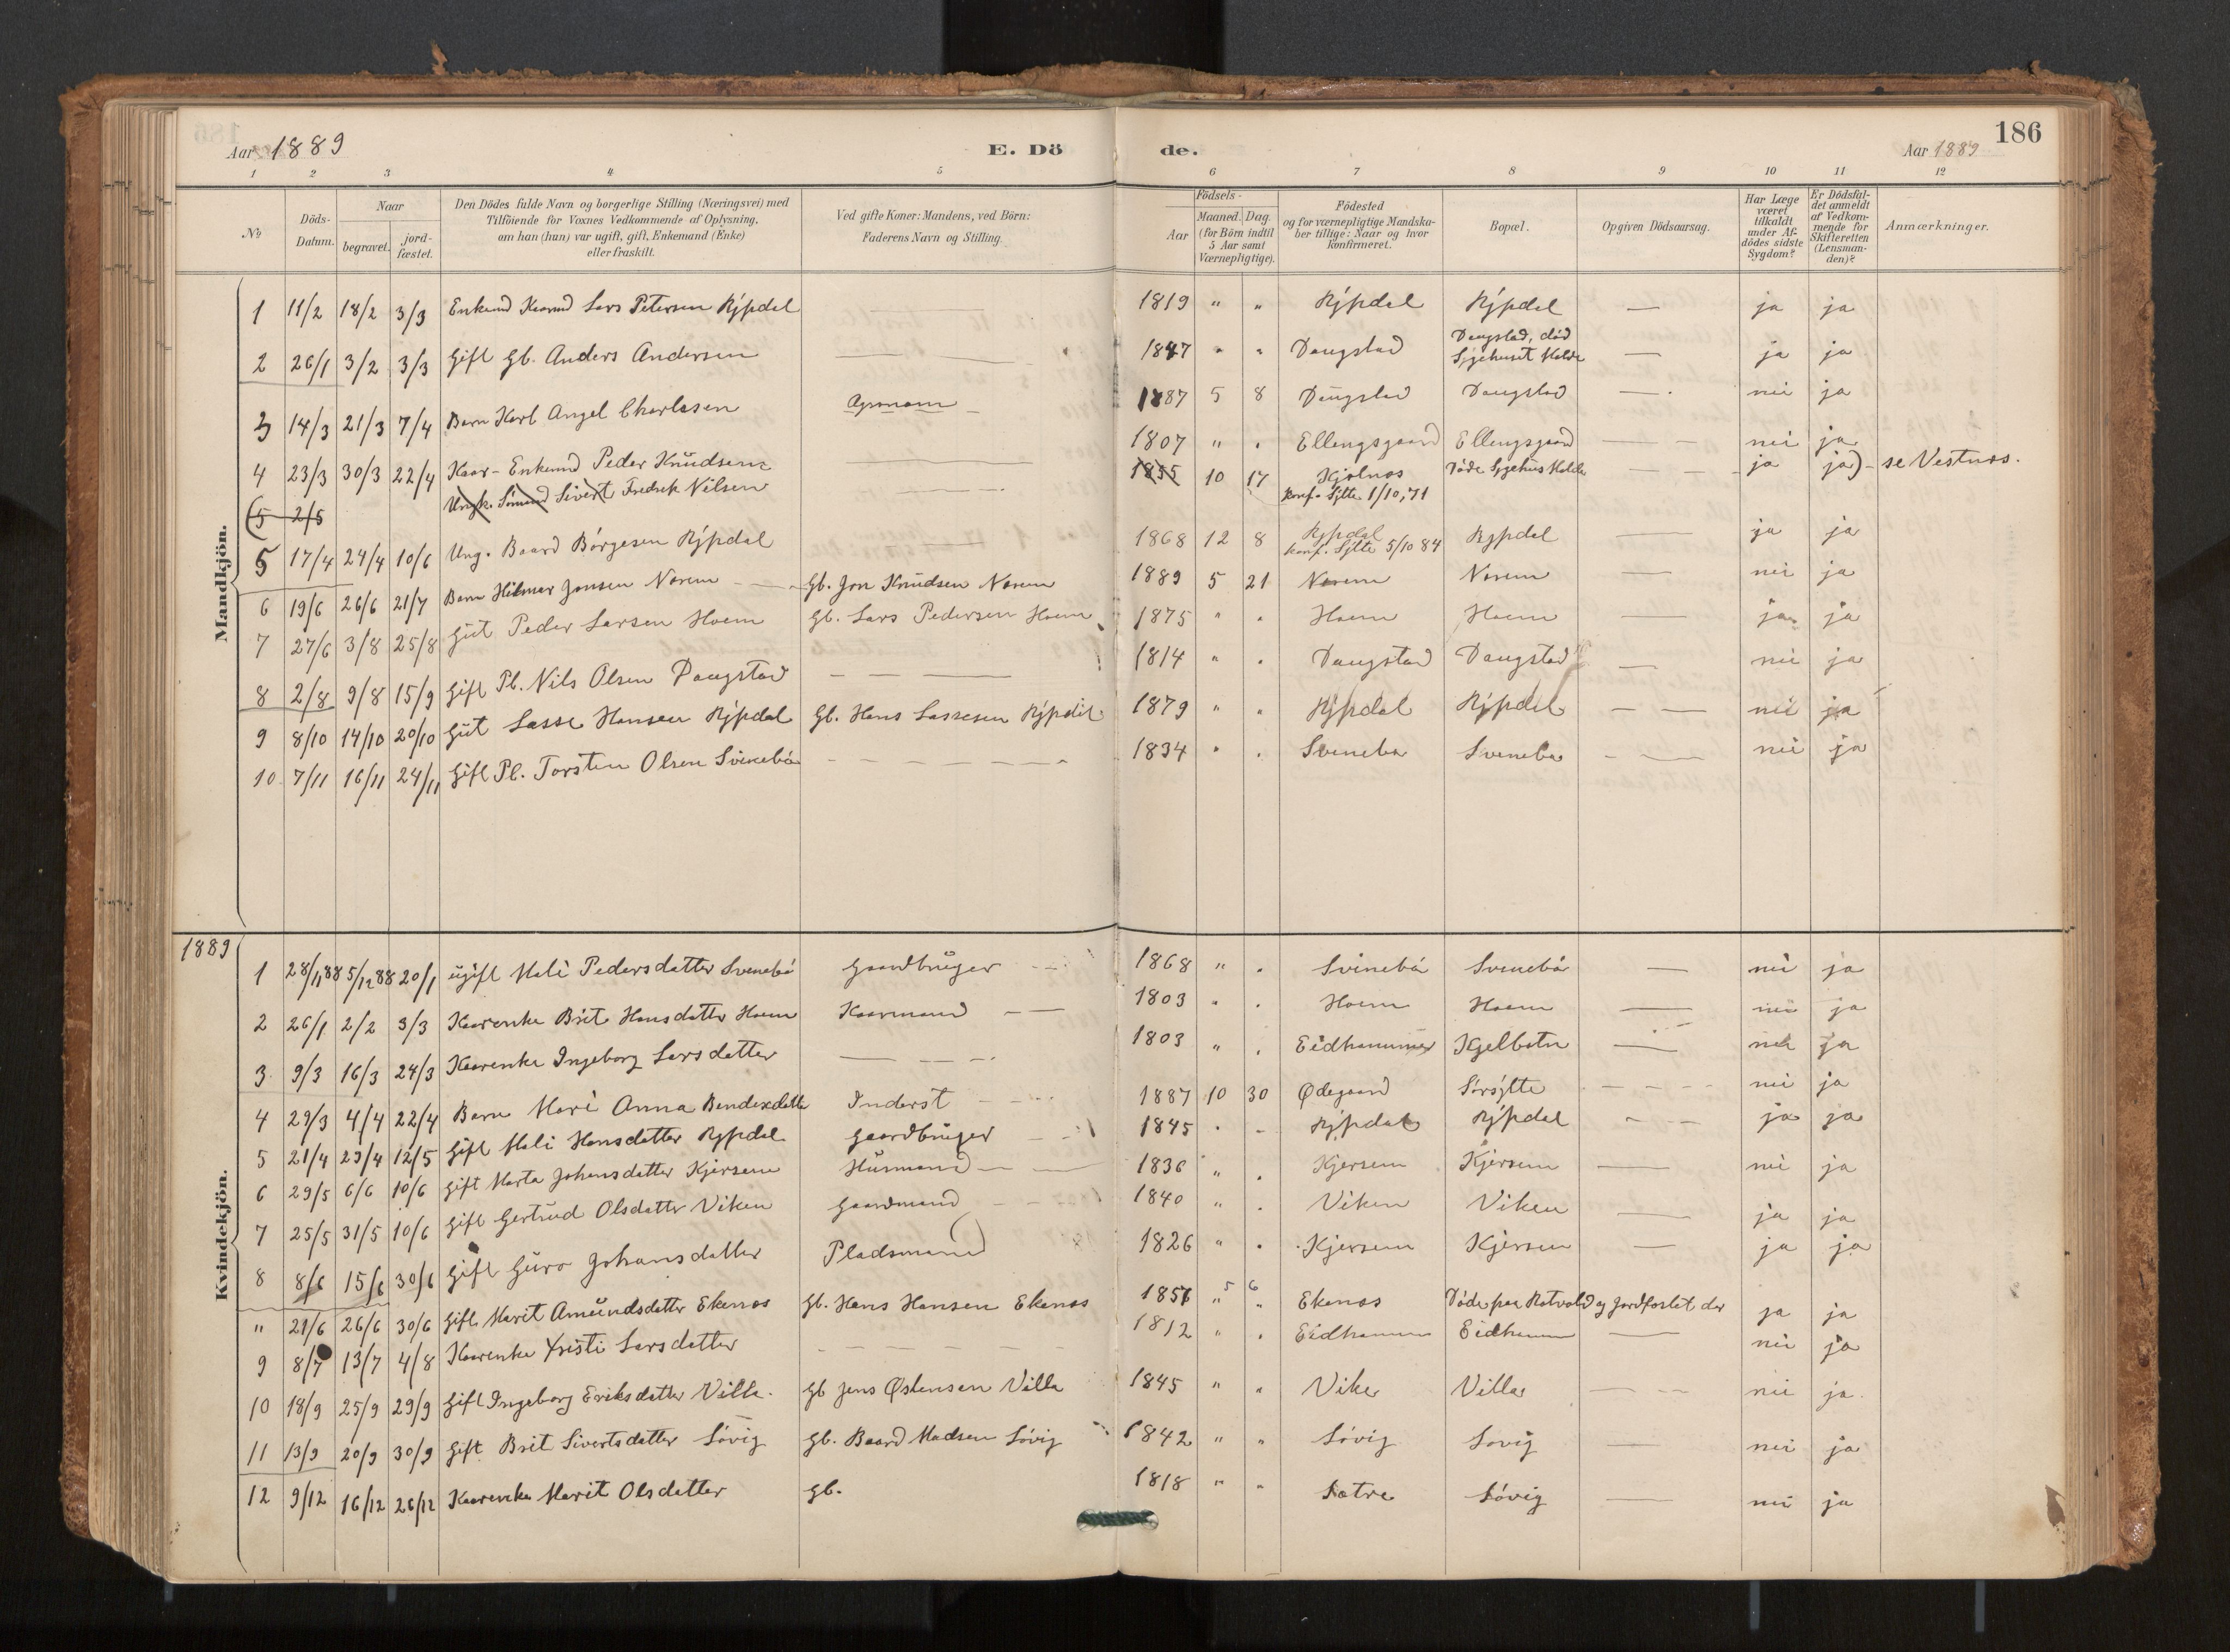 Aar 1889
E. Dö
de.
186
Aar 1889
1 2 3 4 5 6 7 8 9 10 11 12
No
Döds-
Datum.
Naar
begravet.
jord-
fæstet.
Den Dödes fulde Navn og borgerlige Stilling (Næringsvei) med
Tilföiende for Voxnes Vedkommende af Oplysning,
om han (hun) var ugift, gift, Enkemand (Enke)
eller fraskilt.
Ved gifte Koner: Mandens, ved Börn:
Faderens Navn og Stilling.
Födsels-
Aar
Maaned. Dag.
(for Börn indtil
5 Aar samt
Værnepligtige).
Födested
og for værnepligtige Mandska-
ber tillige: Naar og hvor
konfirmeret.
Bopæl.
Opgiven Dödsaarsag.
Har Læge
været
tilkaldt
under Af-
dödes sidste
Sygdom?
Er Dödsfal-
det anmeldt
af Vedkom-
mende for
Skifteretten
(Lensman-
den)?
Anmærkninger.
Mandkjön.
1 11/2 18/2 3/3 Enkemd Kaarmd Lars Petersen Rÿpdal — 1819 " " Rÿpdal Rÿpdal — ja ja
2 26/1 3/2 3/3 Gift Gb. Anders Andersen — 1847 " " Daugstad Daugstad, död
Sÿgehuset Molde — ja ja
3 14/3 21/3 7/4 Barn Karl Angel Charlesen 1887 5 8 Daugstad Daugstad — nei ja
4 23/3 30/3 22/4 Kaar-Enkemd Peder Knudsen — 1807 " " Ellingsgaard Ellingsgaard — nei ja
(5 2/5 Ungk. Sömand Sivert Fredrik Nilsen — 1855 10 17 Kjelnæs
konf. Sÿlte 1/10,71 Döde Sygehus Molde — ja ja) - se Vestnæs.
5 17/4 24/4 10/6 Ung. Baard Börgesen Rÿpdal 1868 12 8 Rypdal
konf. Sylte 5/10 84 Rypdal — ja ja
6 19/6 26/6 21/7 Barn Hilmar Jonsen Norem — Gb. Jon Knudsen Norem 1889 5 21 Norem Norem — nei ja
7 27/6 3/8 25/8 Gut Peder Larsen Hoem Gb. Lars Pedersen Hoem 1875 " " Hoem Hoem — ja ja
8 2/8 9/8 15/9 Gift Pl. Nils Olsen Daugstad — 1814 " " Daugstad Daugstad — nei ja
9 8/10 14/10 20/10 Gut Lasse Hansen Rÿpdal Gb. Hans Lassesen Rÿpdal 1879 " " Rÿpdal Rÿpdal — nei ja
10 7/11 16/11 24/11 Gift Pl. Torsten Olsen Svinebö — 1834 " " Svinebø Svinebø — nei ja
1889
Kvindekjön.
1 28/11 88 5/12 88 20/1 ugift Mali Pedersdatter Svinebö Gaardbruger — 1868 " " Svinebö Svinebö — nei ja
2 26/1 2/2 3/3 Kaarenke Brit Hansdatter Hoem Kaarmand — 1803 " " Hoem Hoem — nei ja
3 9/3 16/3 24/3 Kaarenke Ingeborg Larsdatter — 1803 " " Eidhammer Kjelbotn — nei ja
4 29/3 4/4 22/4 Barn Mari Anna Bendixdatter Inderst — 1887 10 30 Ødegaard Sörsÿlte — nei ja
5 21/4 29/4 12/5 Gift Mali Hansdatter Rypdal Gaardbruger — 1845 " " Rÿpdal Rÿpdal — ja ja
6 29/5 6/6 10/6 Gift Marta Johansdatter Kjersem Husmand — 1836 " " Kjersem Kjersem — nei ja
7 25/5 31/5 10/6 Gift Gertrud Olsdatter Viken Gaardmand — 1840 " " Viken Viken — ja ja
8 8/6 15/6 30/6 Gift Guro Johansdatter Pladsmand 1826 " " Kjersem Kjersem — ja ja
" 21/6 26/6 30/6 Gift Marit Amundsdatter Ekenæs Gb. Hans Hansen Ekenæs 1857 5 6 Ekenæs Döde paa Rotvold og Jordfæstet der ja ja
9 8/7 13/7 4/8 Kaarenke Kristi Larsdatter — 1812 " " Eidhammer Eidhammer — nei ja
10 18/9 25/9 29/9 Gift Ingeborg Eriksdatter Villa. Gb Jens Østensen Villa 1845 " " Vike Villa — nei ja.
11 13/9 20/9 30/9 Gift Brit Sivertsdatter Sövig Gb. Baard Madsen Sövig 1842 " " Sövig Sövig — nei ja
12 9/12 16/12 26/12 Kaarenke Marit Olsdatter Gb. 1818 " " Sætre Sövig — nei ja